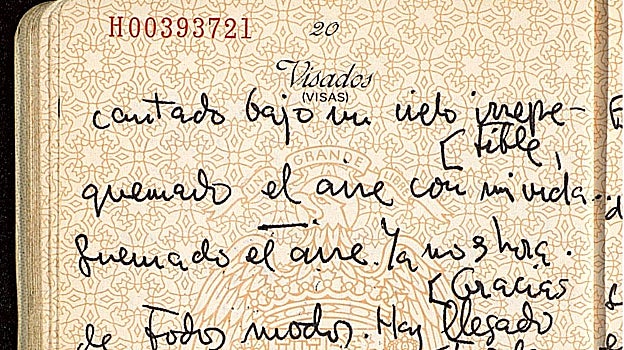 H00393721
20
Visados
(VISAS)
cantado bajo un cielo irrepe-
[tible,
quemado el aire con mi vida.
quemado el aire. Ya no es hora.
[Gracias
de todos modos. Hay llegado